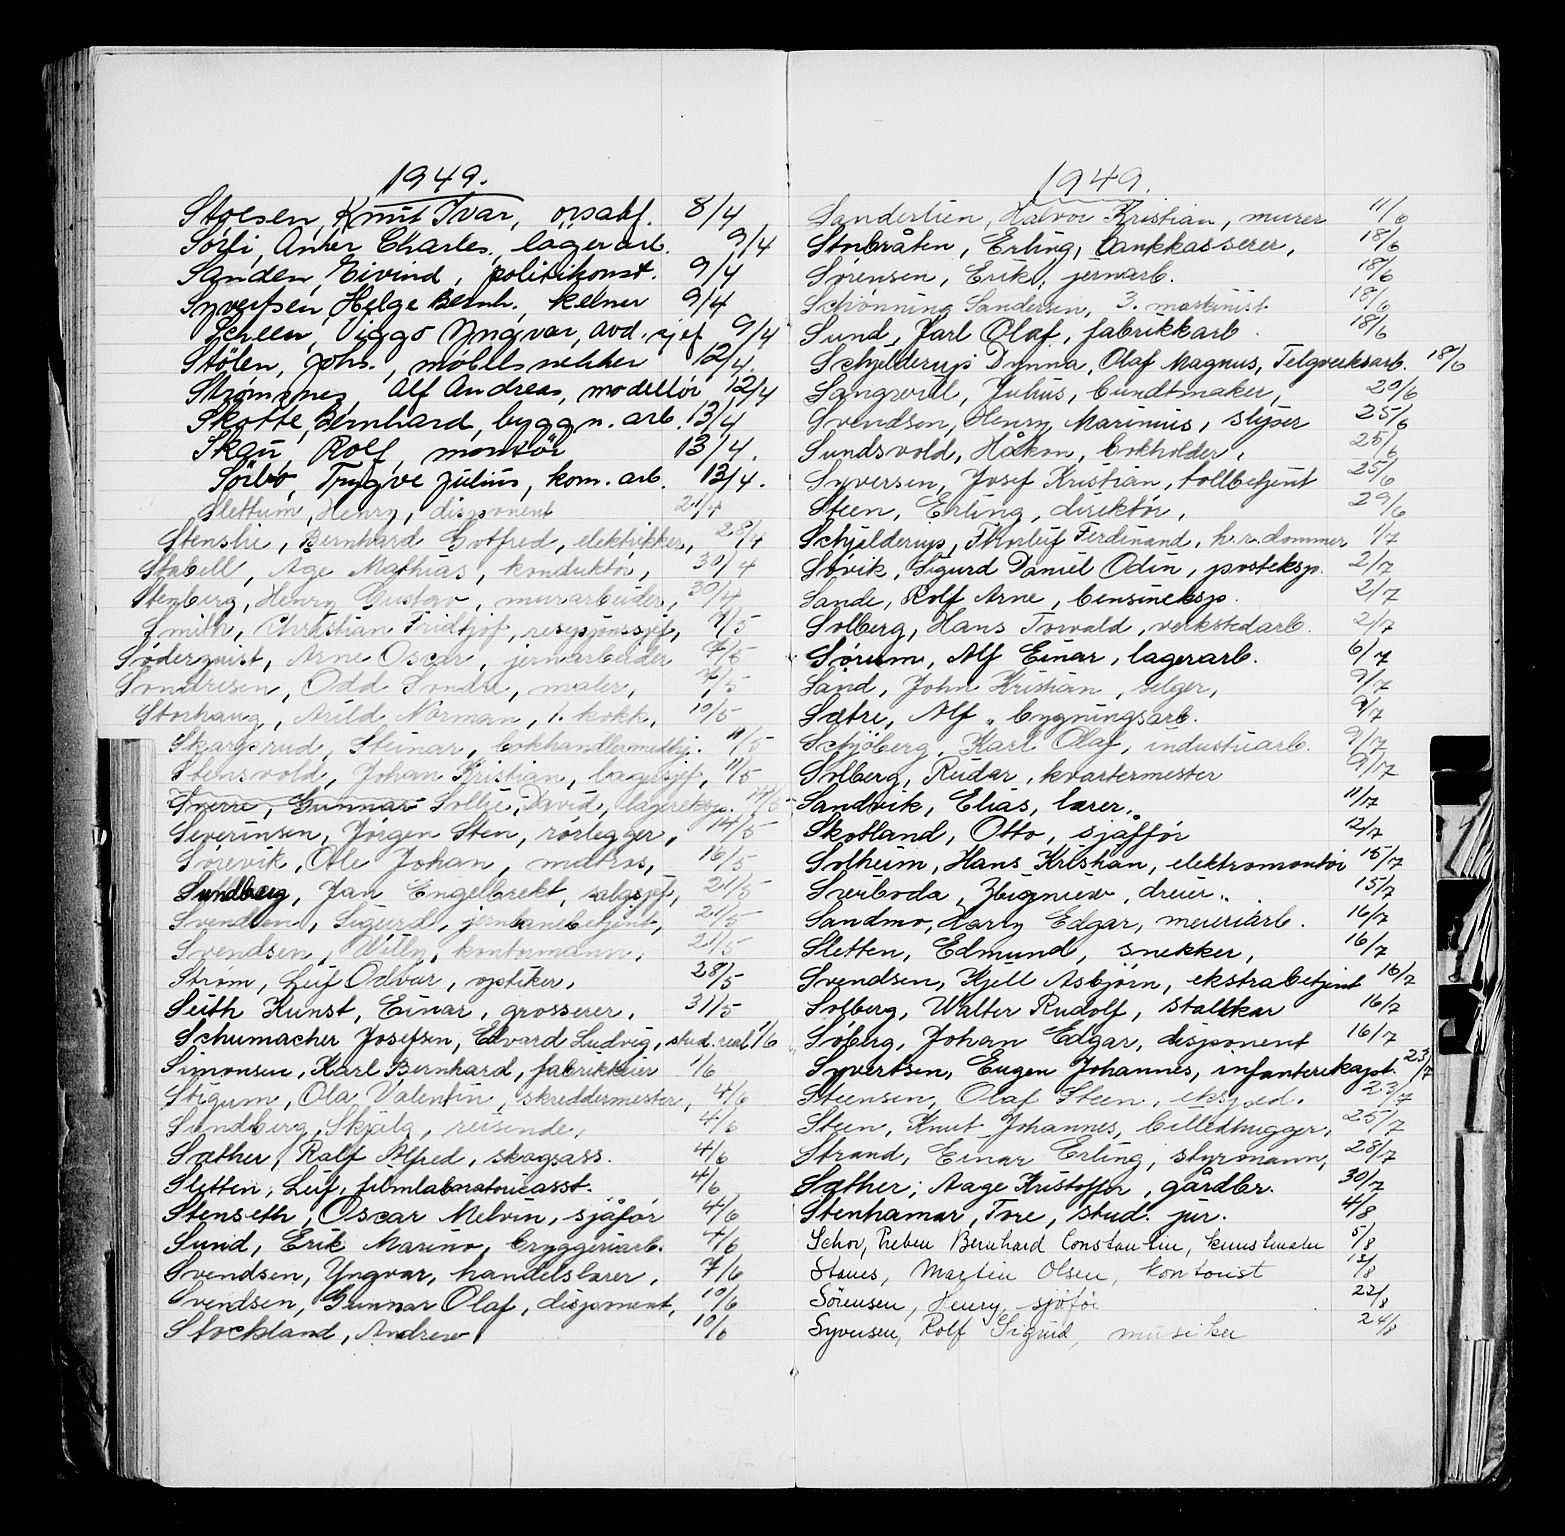 1949.
Støesen, Knut Ivar, 8/4
Sørli, Anker Charles, lagerarb. 9/4
Sanden, Eivind, politikonst. 9/4
Syvertsen, Helge Bernh., kelner 9/4
Scheen, Viggo Yngvar, avd. sjef 9/4
Stölen, Johs., möbelsnekker 12/4.
Strømsnes, Alf Andreas, modellør 12/4
Skotte, Bernhard, byggn. arb. 13/4
Skau, Rolf, montör 13/4.
Sörbö, Trygve Julius, kom. arb. 13/4.
Slettum, Henry, disponent 21/4
Stenslie, Bernhard Gotfred, elektrikker, 28/4
Stabell, Åge Mathias, konduktör, 30/4
Stenberg, Henry Gustav, murarbeider, 30/4
Smith, Christian Fridtjof, resepsjonssjef, 7/5
Söderquist, Arne Oscar, jernarbeider 7/5
Sondresen, Odd Sondre, maler, 7/5
Storhaug, Arild Norman, 1. kokk, 10/5
Skarsrud, Steinar, bokhandlermedhj. 11/5
Stensvold, Johan Kristian, lagersjef, 11/5
Sverre, Gunnar Sollie, David, lagereksp. 14/5
Severinsen, Jörgen Sten, rörlegger, 14/5
Sørevik, Ole Johan, matros, 16/5
Sundberg, Jan Engelbrekt, salgssjef, 21/5
Svendsen, Sigurd, jernbanebetjent, 21/5
Svendsen, Willy, kontormann, 21/5
Strøm, Leif Odvar, optiker, 28/5
Seith Kunst, Einar, grosserer, 31/5
Schumacher Josefsen, Edvard Ludvig, stud. real 1/6
Simonsen, Karl Bernhard, fabrikkeier 1/6
Stigum, Ola Valentin, skreddermester, 4/6
Sundberg, Skjalg, reisende, 4/6
Sæther, Ralf Alfred, skogsass. 4/6
Sletten, Leif, filmlaboratorieasst. 4/6
Stenseth, Oscar Melvin, sjåfør 4/6
Sund, Erik Marino, bryggeriarb. 4/6
Svendsen, Yngvar, handelslærer, 7/6
Svendsen, Gunnar Olaf, disponent, 10/6
Stockland, Andrew, 10/6
1949.
Sanderlien, Halvor Kristian, murer 11/6
Storbråten, Erling, bankkasserer, 18/6
Sørensen, Erik, jernarb. 18/6
Schønning Sandersen, 3. maskinist 18/6
Sund, Jarl Olaf, fabrikkarb. 18/6
Schjelderup Dynna, Olaf Magnus, Telgverksarb. 18/6
Sangvill, Julius, bundtmaker, 20/6
Svendsen, Henry Marinius, sliper 25/6
Sundsvold, Håkon, bokholder, 25/6
Syversen, Josef Kristian, tollbetjent 25/6
Steen, Erling, direktör, 29/6
Schjelderup, Thorleif Ferdinand, h.r.dommer 1/7
Søvik, Sigurd Daniel Odin, posteksp. 2/7
Sande, Rolf Arne, bensineksp. 2/7
Solberg, Hans Torvald, verkstedarb. 2/7
Sørum, Alf Einar, lagerarb. 6/7
Sand, John Kristian, selger, 9/7
Sætre, Alf, bygningsarb. 9/7
Schjöberg, Karl Olaf, industriarb. 9/7
Solberg, Reidar, kvartermester 9/7
Sandvik, Elias, lærer, 11/7
Skotland, Otto, sjåffør 12/7
Solheim, Hans Kristian, elektromontör 15/7
Swiboda, Zbigniew, dreier, 15/7
Sandmo, Harry Edgar, meieriarb. 16/7
Sletten, Edmund, snekker, 16/7
Svendsen, Kjell Asbjørn, ekstrabetjent 16/7
Solberg, Walter Rudolf, stallkar 16/7
Søberg, Johan Edgar, disponent 16/7
Syvertsen, Eugen Johannes, infanterikapt. 23/7
Steensen, Olaf Steen, eksped. 23/7
Steen, Knut Johannes, billedhugger, 25/7
Strand, Einar Erling, styrmann, 28/7
Sæther, Aage Kristoffer, gårdbr. 30/7
Stenhamar, Tore, stud. jur. 4/8
Schou, Preben Bernhard Constantin, kunstmaler 5/8
Staues, Martin Olsen, kontorist 13/8
Sörensen, Henry, sjöför 22/8
Syversen, Rolf Sigurd, musiker 24/8